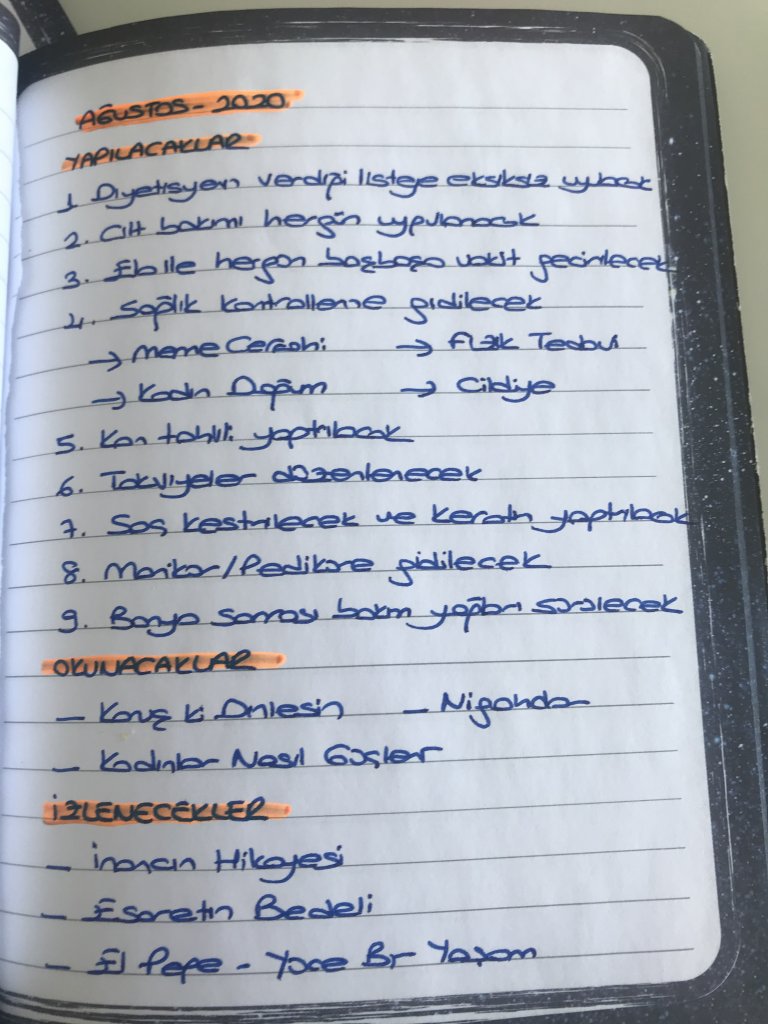 AĞUSTOS - 2020
YAPILACAKLAR
1. Diyetisyen verdiği listeye eksiksiz uyulacak
2. Cilt bakımı hergün uygulanacak
3. Ebile hergün başbaşa vakit geçirilecek
4. Sağlık kontrollerine gidilecek
→ Meme Cerrahi → Fizik Tedavi
→ Kadın Doğum → Cildiye
5. Kan tahlili yaptırılacak
6. Takviyeler düzenlenecek
7. Saç kestirilecek ve keratin yaptırılacak
8. Manikür/Pediküre gidilecek
9. Banyo sonrası bakım yağları sürülecek
OKUNACAKLAR
- Konuş ki Dinlesin - Nigahdar
- Kadınlar Nasıl Güçlenir
İZLENECEKLER
- İnancın Hikayesi
- Esaretin Bedeli
- El Pepe - Yüce Bir Yaşam